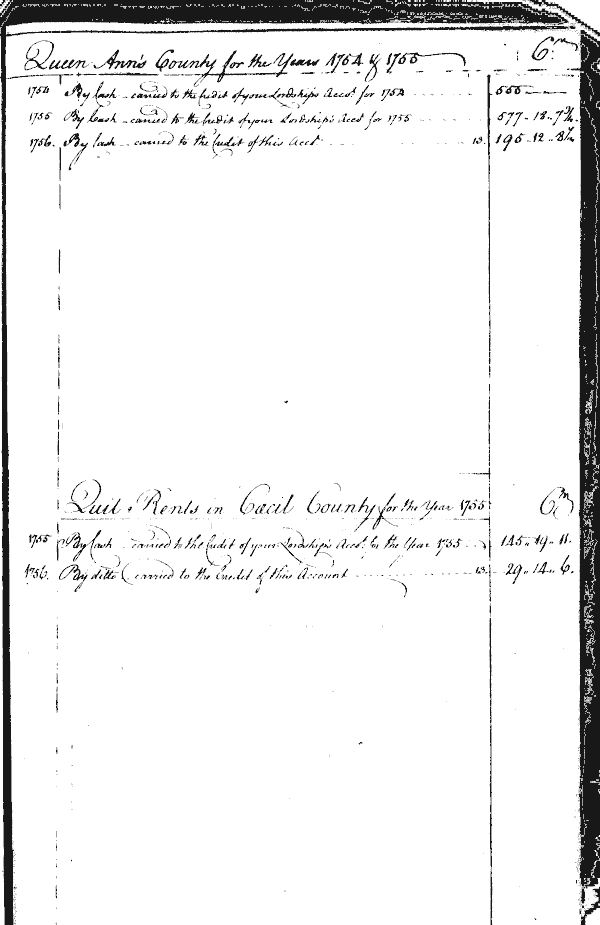 Queen Ann's County for the Years 1754 & 1755 Cr.
1754 By Cash - carried to the Credit of your Lordship's Acct. for 1754 555 - -
1755 By Cash - carried to the Credit of your Lordship's Acct. for 1755 577 - 13 - 7
1756. By Cash - carried to the Credit of this Acct. 13. 195 - 12 - 8
Quit Rents in Cæcil County for the Year 1755 Cr.
1755 By Cash - carried to the Credit of your Lordship's Acct. for the Year 1755 145 - 19 - 11.
1756. By ditto carried to the Credit of this Account 13. 29 - 14 - 6.